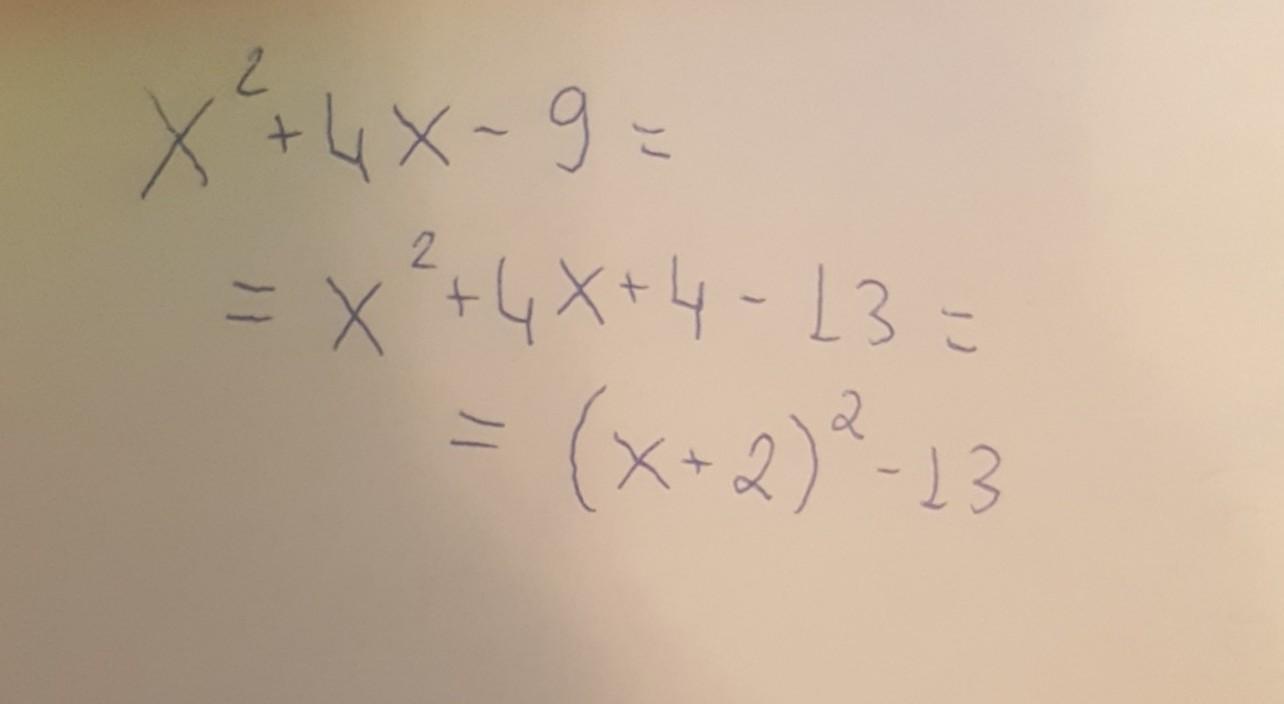 x²+4x-9=
=x²+4x+4-13=
=(x+2)²-13